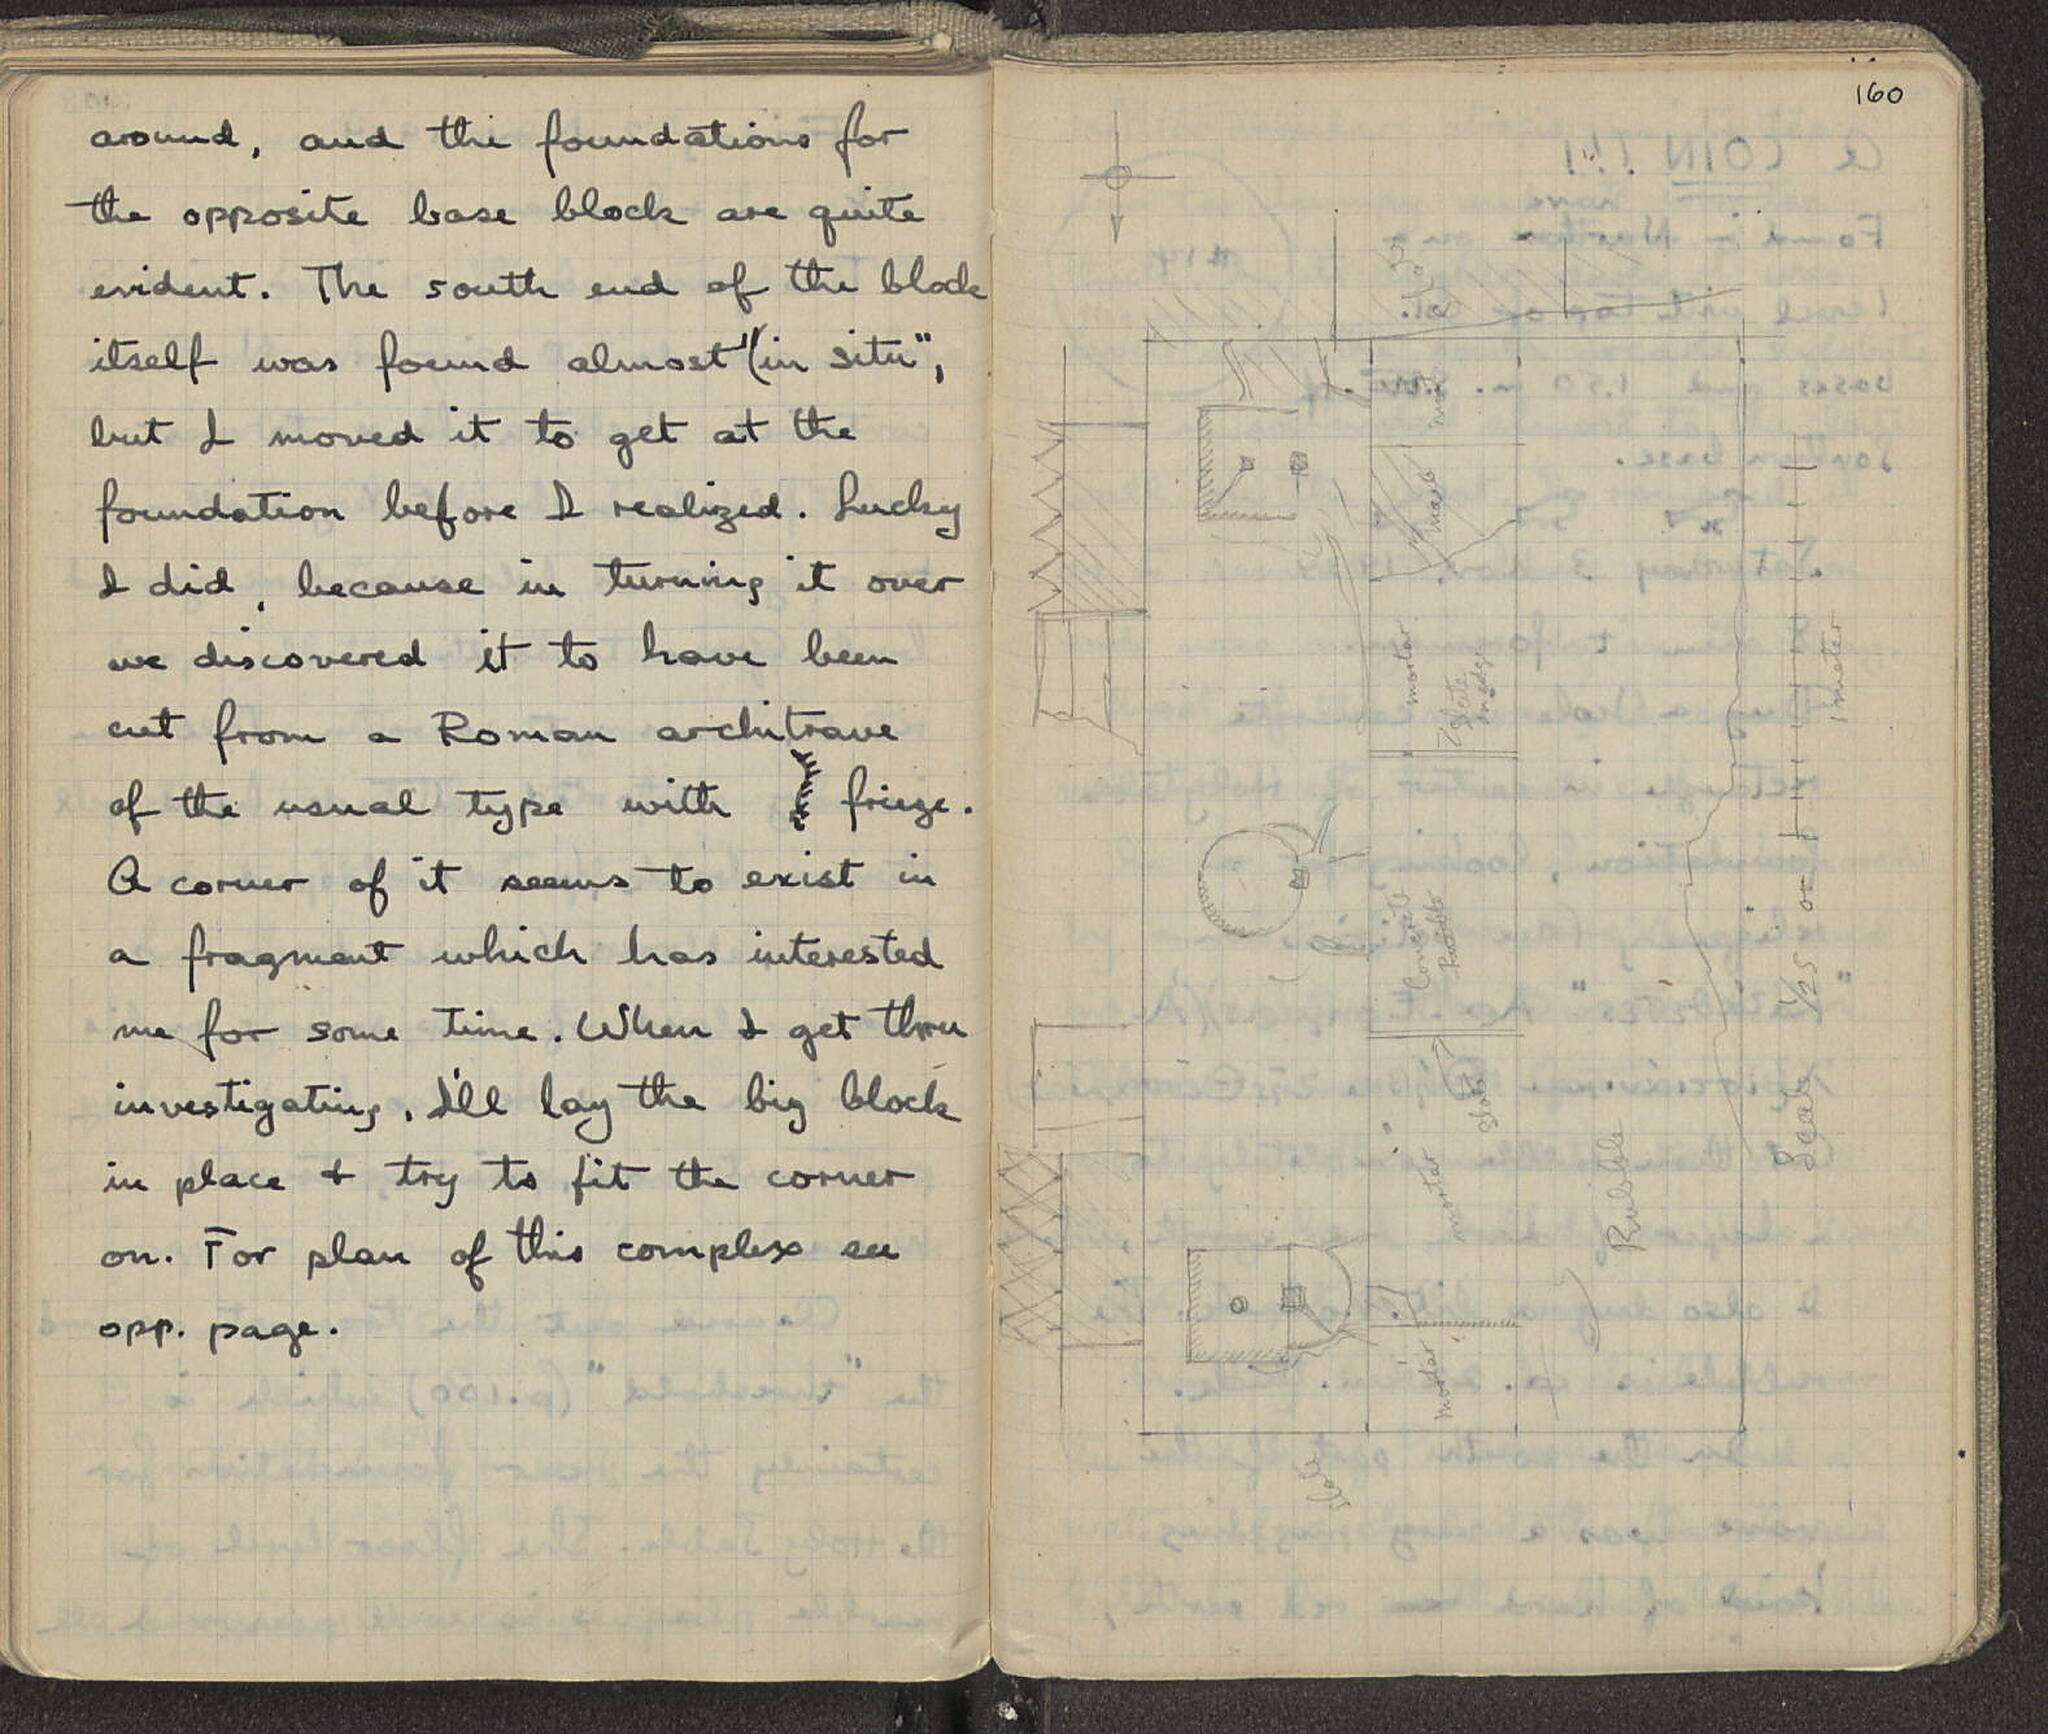 around, and the foundations for
the opposite base block are quite
evident. The south end of the block
itself was found almost "(in situ",
but I moved it to get at the
foundation before I realized. Lucky
I did, because in turning it over
we discovered it to have been
cut from a Roman architrave
of the usual type with frieze.
A corner of it seems to exist in
a fragment which has interested
me for some time. When I get thru
investigating, I'll lay the big block
in place & try to fit the corner
on. For plan of this complex see
opp. page.
160
marb
mortar
Slate
on edge
Concrete
Rubble
Slate
mortar
mortar
Rubble
Slate
Scale 1/25 or
1 meter